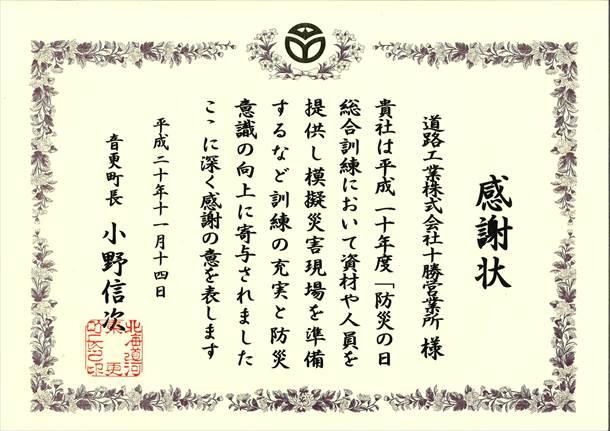 感謝状
道路工業株式会社十勝営業所 様
貴社は平成二十年度「防災の日
総合訓練において資材や人員を
提供し模擬災害現場を準備
するなど訓練の充実と防災
意識の向上に寄与されました
こゝに深く感謝の意を表します
平成二十年十一月十四日
音更町長 小野信次